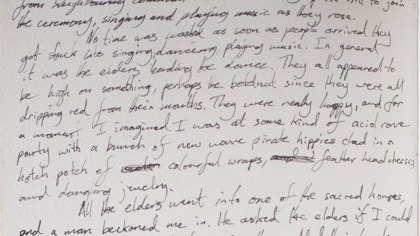 the ceremony, singing and playing music as they rose.
No time was as soon as people arrived they
got stuck into singing, danceing, playing music. In general
it was the elders leading the dance. They all appeared to
be high on something, perhaps be betelnut since they were all
dripping red from their mouths. They were really happy, and for
a moment I imagined I was at some kind of acid rove
party with a bunch of new wave pirate hippies clad in a
hotch potch of colourful wraps, feather headdresses
and dangling jewelry.
All the elders went into one of the sacred houses,
and a man beckoned me in. He asked the elders if I could